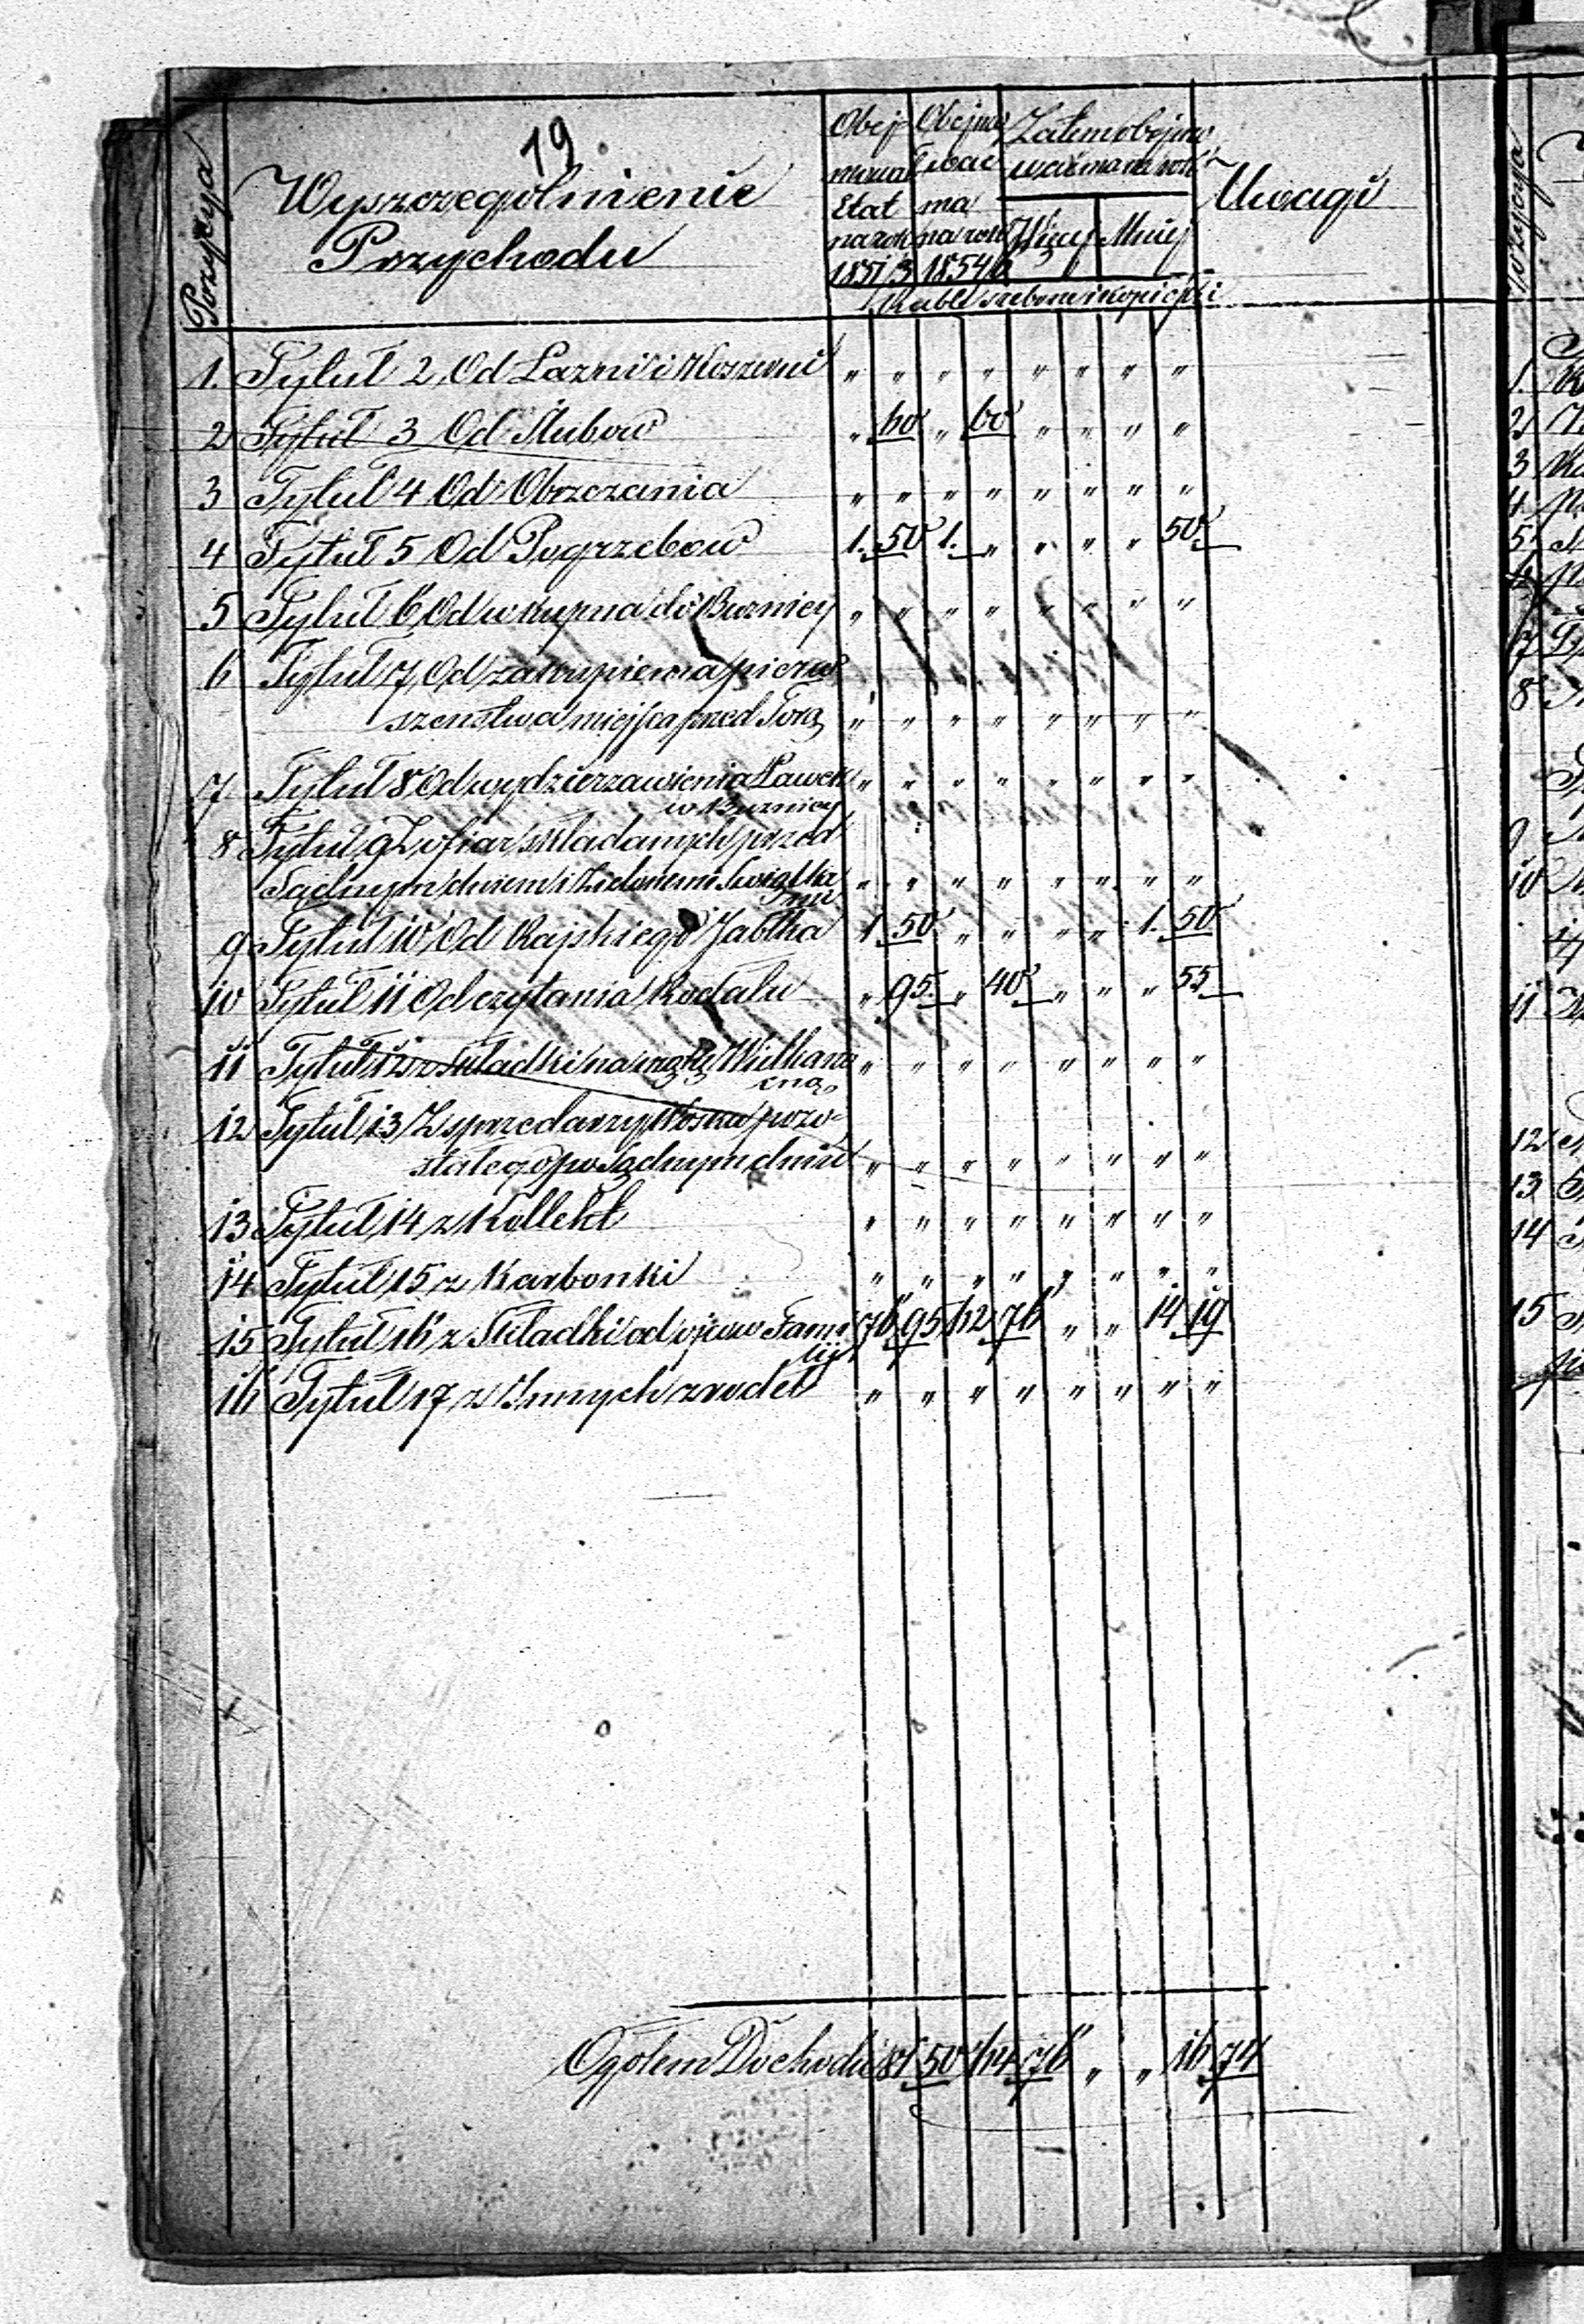 19.
Pozycya
Wyszczególnienie
Przychodu
Obej
mował
Etat
na rok
1851/3
Obejmo
wać
ma
na rok
1854/6
Zatem obejmo
wać ma na rok
Więcej
Mniej
Uwagi
Rubli srebrem i kopiejki
1. Tytuł 2. Od Łazni i Koszerni " " " " " " " "
2 Tytuł 3 Od Slubow " 60 " 60 " " " "
3 Tytuł 4 Od Obrzezania " " " " " " " "
4 Tytuł 5 Od Pogrzebow 1. 50 1. " " " " 50.
5 Tytuł 6 Od wkupna do Buznicy " " " " " " " "
6 Tytuł 7, Od zakupienia pierw
szenstwa miejsca przed Torą " " " " " " " "
7 Tytuł 8 Od wydzierzawienia Ławek " " " " " " " "
w Buznicy
8 Tytuł 9 Z ofiar składanych przed
Sądnym dniem i Zielonemi Swiątka " " " " " " " "
mi
9 Tytuł 10 Od Rajskiego Jabłka 1 50 " " " " 1. 50
10 Tytuł 11 Od czytania Rodału " 95. " 40 " " " 55
11 Tytuł 12 ze składki na mąkę Wielkano " " " " " " " "
cną
12 Tytuł 13 Z sprzedarzy Wosku pozo-
stałego po Sądnym dniu " " " " " " " "
13 Tytuł 14 z Kollekt " " " " " " " "
14 Tytuł 15 z Karbonki " " " " " " " "
15 Tytuł 16 z Składki od ojcow Fami 76 95 62 76 " " 14 19
lij
16 Tytuł 17 z Innych zrodeł " " " " " " " "
Ogółem Dochodu 81 50 64 76 " " 16 74